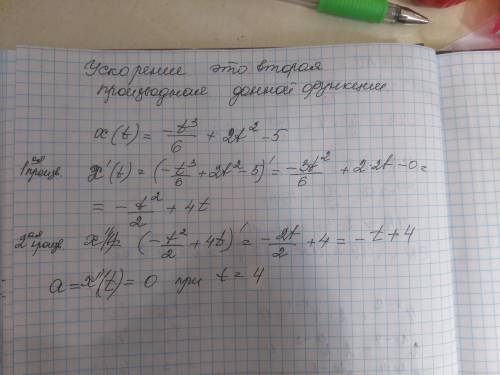 Ускорение это вторая
производная данной функции
x(t) = -t³/6 + 2t² - 5
1ая произв. x'(t) = (-t³/6 + 2t² - 5)' = -3t²/6 + 2·2t - 0 =
= -t²/2 + 4t
2ая произв. x'' (-t²/2 + 4t)' = -2t/2 + 4 = -t + 4
a = x''(t) = 0 при t = 4